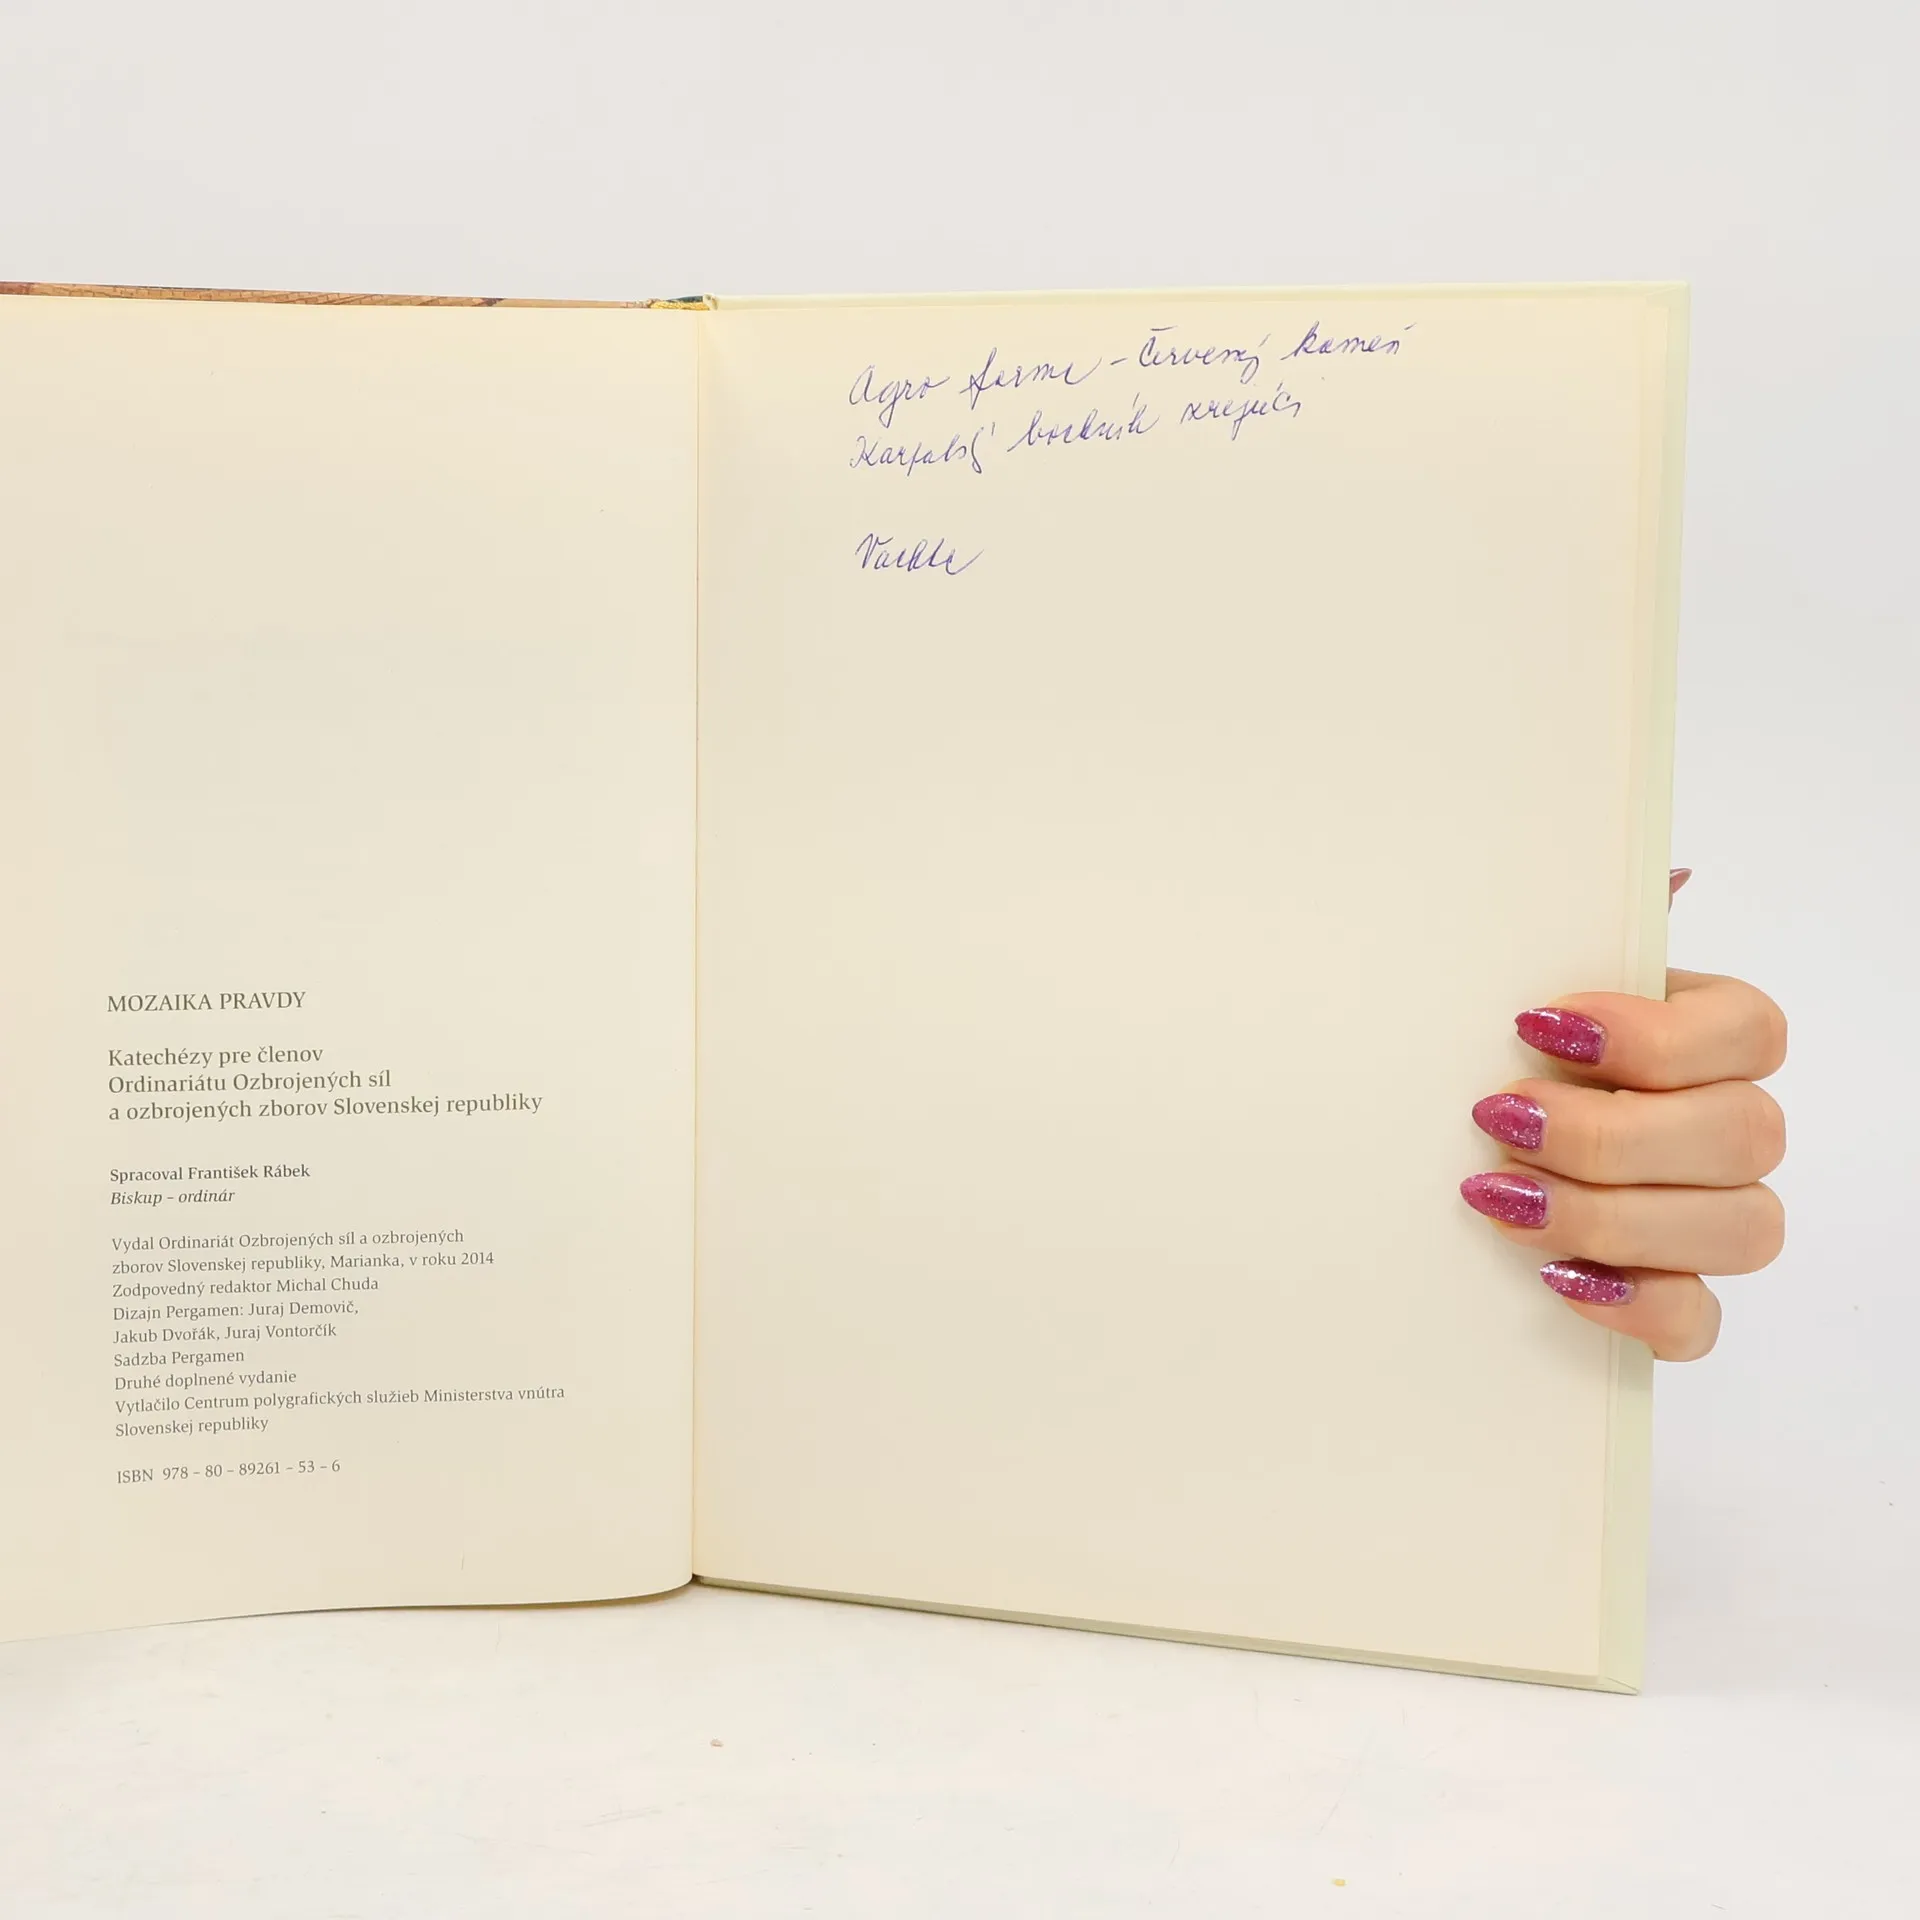 MOZAIKA PRAVDY
Katechézy pre členov
Ordinariátu Ozbrojených síl
a ozbrojených zborov Slovenskej republiky
Spracoval František Rábek
Biskup – ordinár
Vydal Ordinariát Ozbrojených síl a ozbrojených
zborov Slovenskej republiky, Marianka, v roku 2014
Zodpovedný redaktor Michal Chuda
Dizajn Pergamen: Juraj Demovič,
Jakub Dvořák, Juraj Vontorčík
Sadzba Pergamen
Druhé doplnené vydanie
Vytlačilo Centrum polygrafických služieb Ministerstva vnútra
Slovenskej republiky
ISBN 978 – 80 – 89261 – 53 – 6
Agro farma – Červený kameň
Karpatský bochník zrejúci